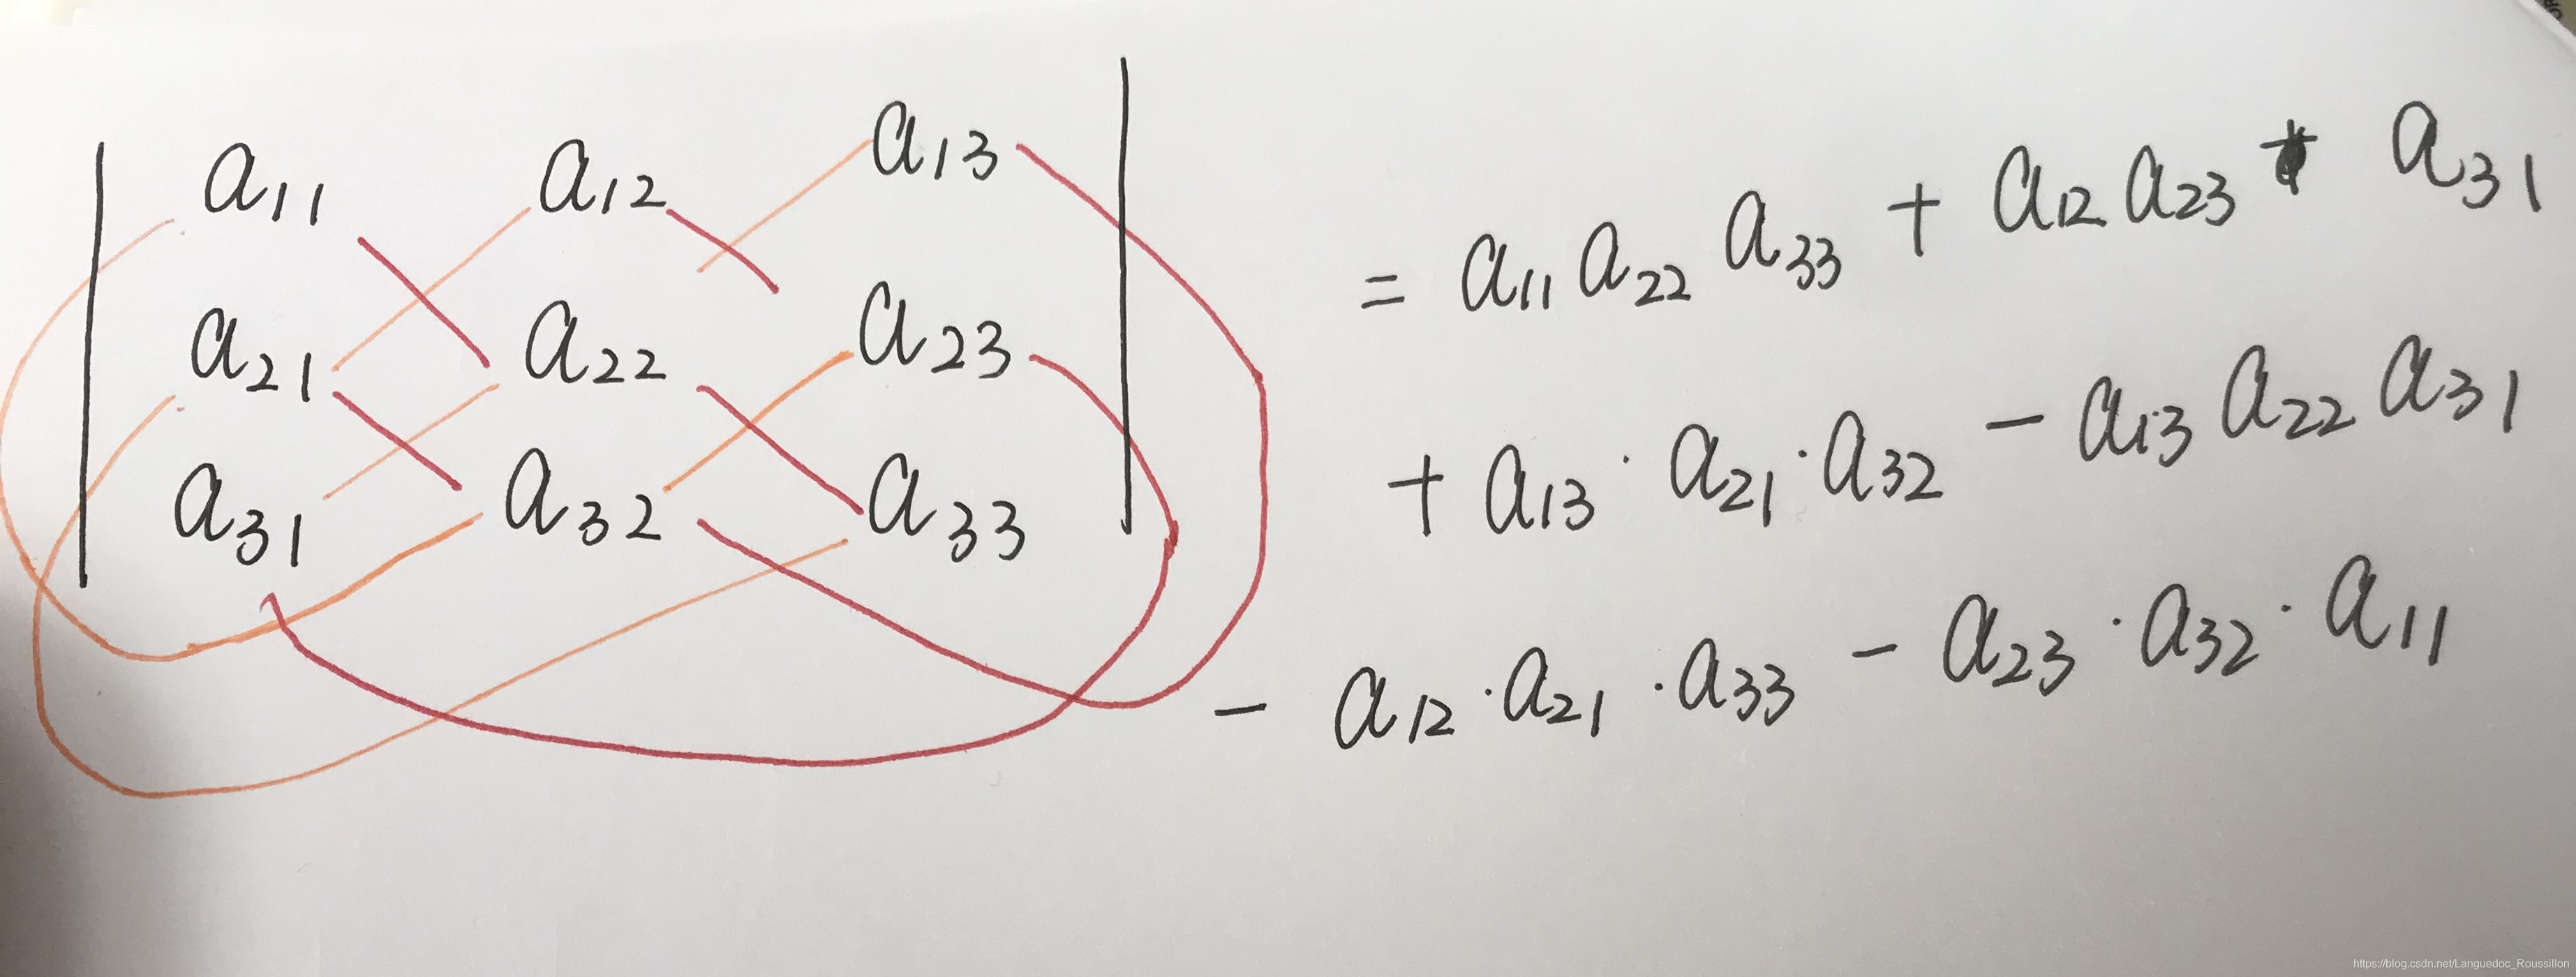 a11 a12 a13
a21 a22 a23
a31 a32 a33
= a11 a22 a33 + a12 a23 a31
+ a13 · a21 · a32 − a13 a22 a31
− a12 · a21 · a33 − a23 · a32 · a11
https://blog.csdn.net/Languedoc_Roussillon